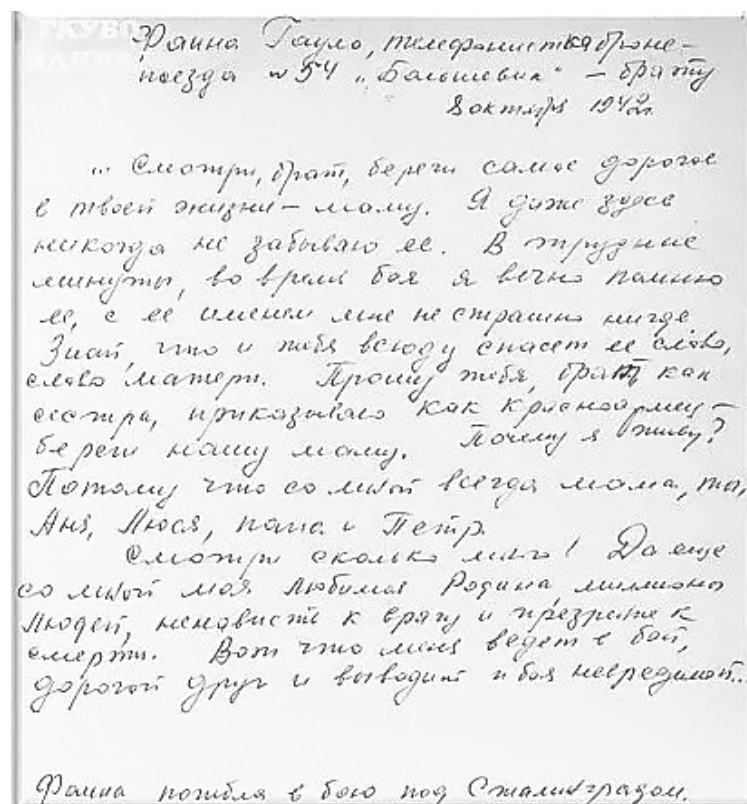 Фаина Гауло, телефонистка броне-
поезда №54 „Большевик“ – брату
8 октября 1942г.
... Смотри, брат, береги самое дорогое
в твоей жизни – маму. Я даже здесь
никогда не забываю ее. В трудные
минуты, во время боя я вечно помню
ее, с ее именем мне не страшно нигде
Знай, что и тебя всюду спасет ее слово,
слово матери. Прошу тебя, брат, как
сестра, приказываю как красноармеец –
береги нашу маму. Почему я живу?
Потому что со мной всегда мама, ты,
Аня, Люся, папа и Петр.
Смотри сколько много! Да еще
со мной моя любимая Родина, миллионы
людей, ненависть к врагу и презрение к
смерти. Вот что меня ведет в бой,
дорогой друг и выводит из боя невредимой...
Фаина погибла в бою под Сталинградом.